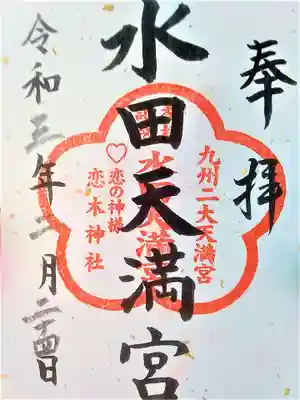 奉拝
九州二大天満宮
水田天満宮
♡恋の神様
恋木神社
令和三年二月二十四日